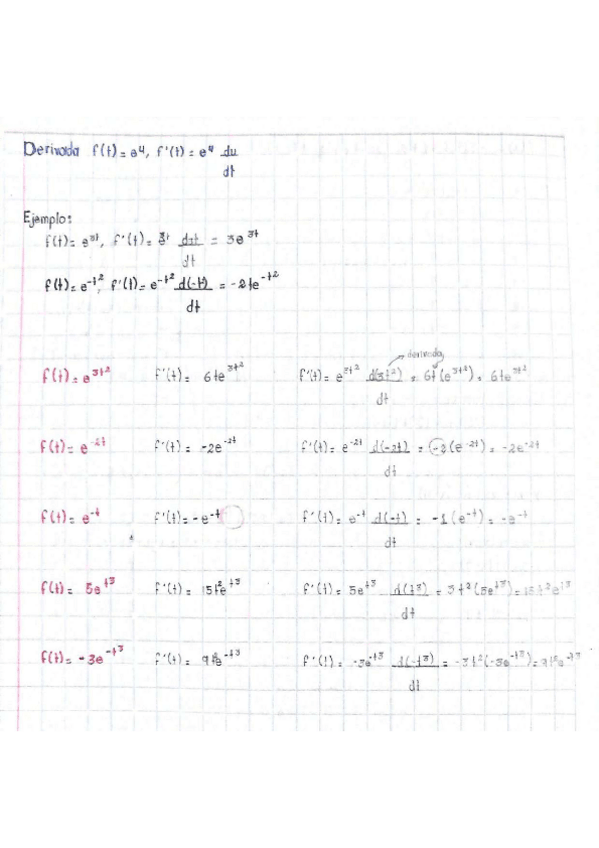 Derivada f(t) = e^u, f'(t) = e^u du/dt
Ejemplo:
f(t) = e^3t, f'(t) = e^3t d3t/dt = 3e^3t
f(t) = e^-t², f'(t) = e^-t² d(-t)/dt = -2te^-t²
derivada
f(t) = e^3t² f'(t) = 6te^3t² f'(t) = e^3t² d(3t²)/dt = 6t(e^3t²) = 6te^3t²
f(t) = e^-2t f'(t) = -2e^-2t f'(t) = e^-2t d(-2t)/dt = -2(e^-2t) = -2e^-2t
f(t) = e^-t f'(t) = -e^-t f'(t) = e^-t d(-t)/dt = -1(e^-t) = -e^-t
f(t) = 5e^t³ f'(t) = 15t²e^t³ f'(t) = 5e^t³ d(t³)/dt = 3t²(5e^t³) = 15t²e^t³
f(t) = -3e^-t³ f'(t) = 9t²e^-t³ f'(t) = -3e^-t³ d(-t³)/dt = -3t²(-3e^-t³) = 9t²e^-t³